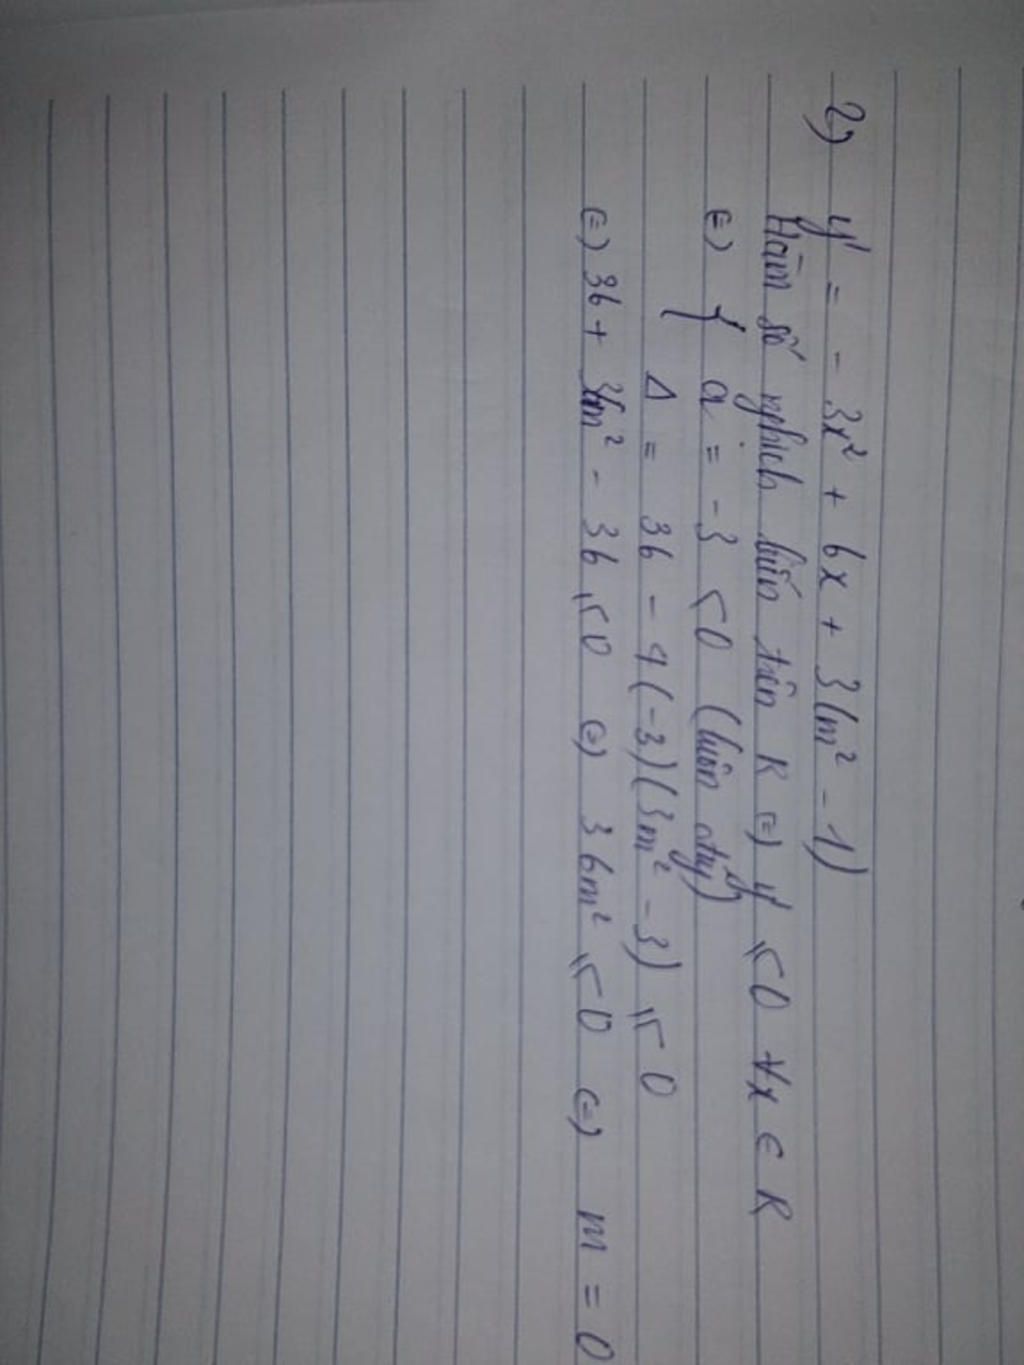 2) y' = - 3x² + 6x + 3(m² - 1)
Hàm số nghịch biến trên R (=) y' ≤ 0 ∀x ∈ R
(=) { a = -3 < 0 (luôn đúng)
Δ = 36 - 4(-3)(3m² - 3) ≤ 0
(=) 36 + 36m² - 36 ≤ 0 (=) 36m² ≤ 0 (=) m = 0